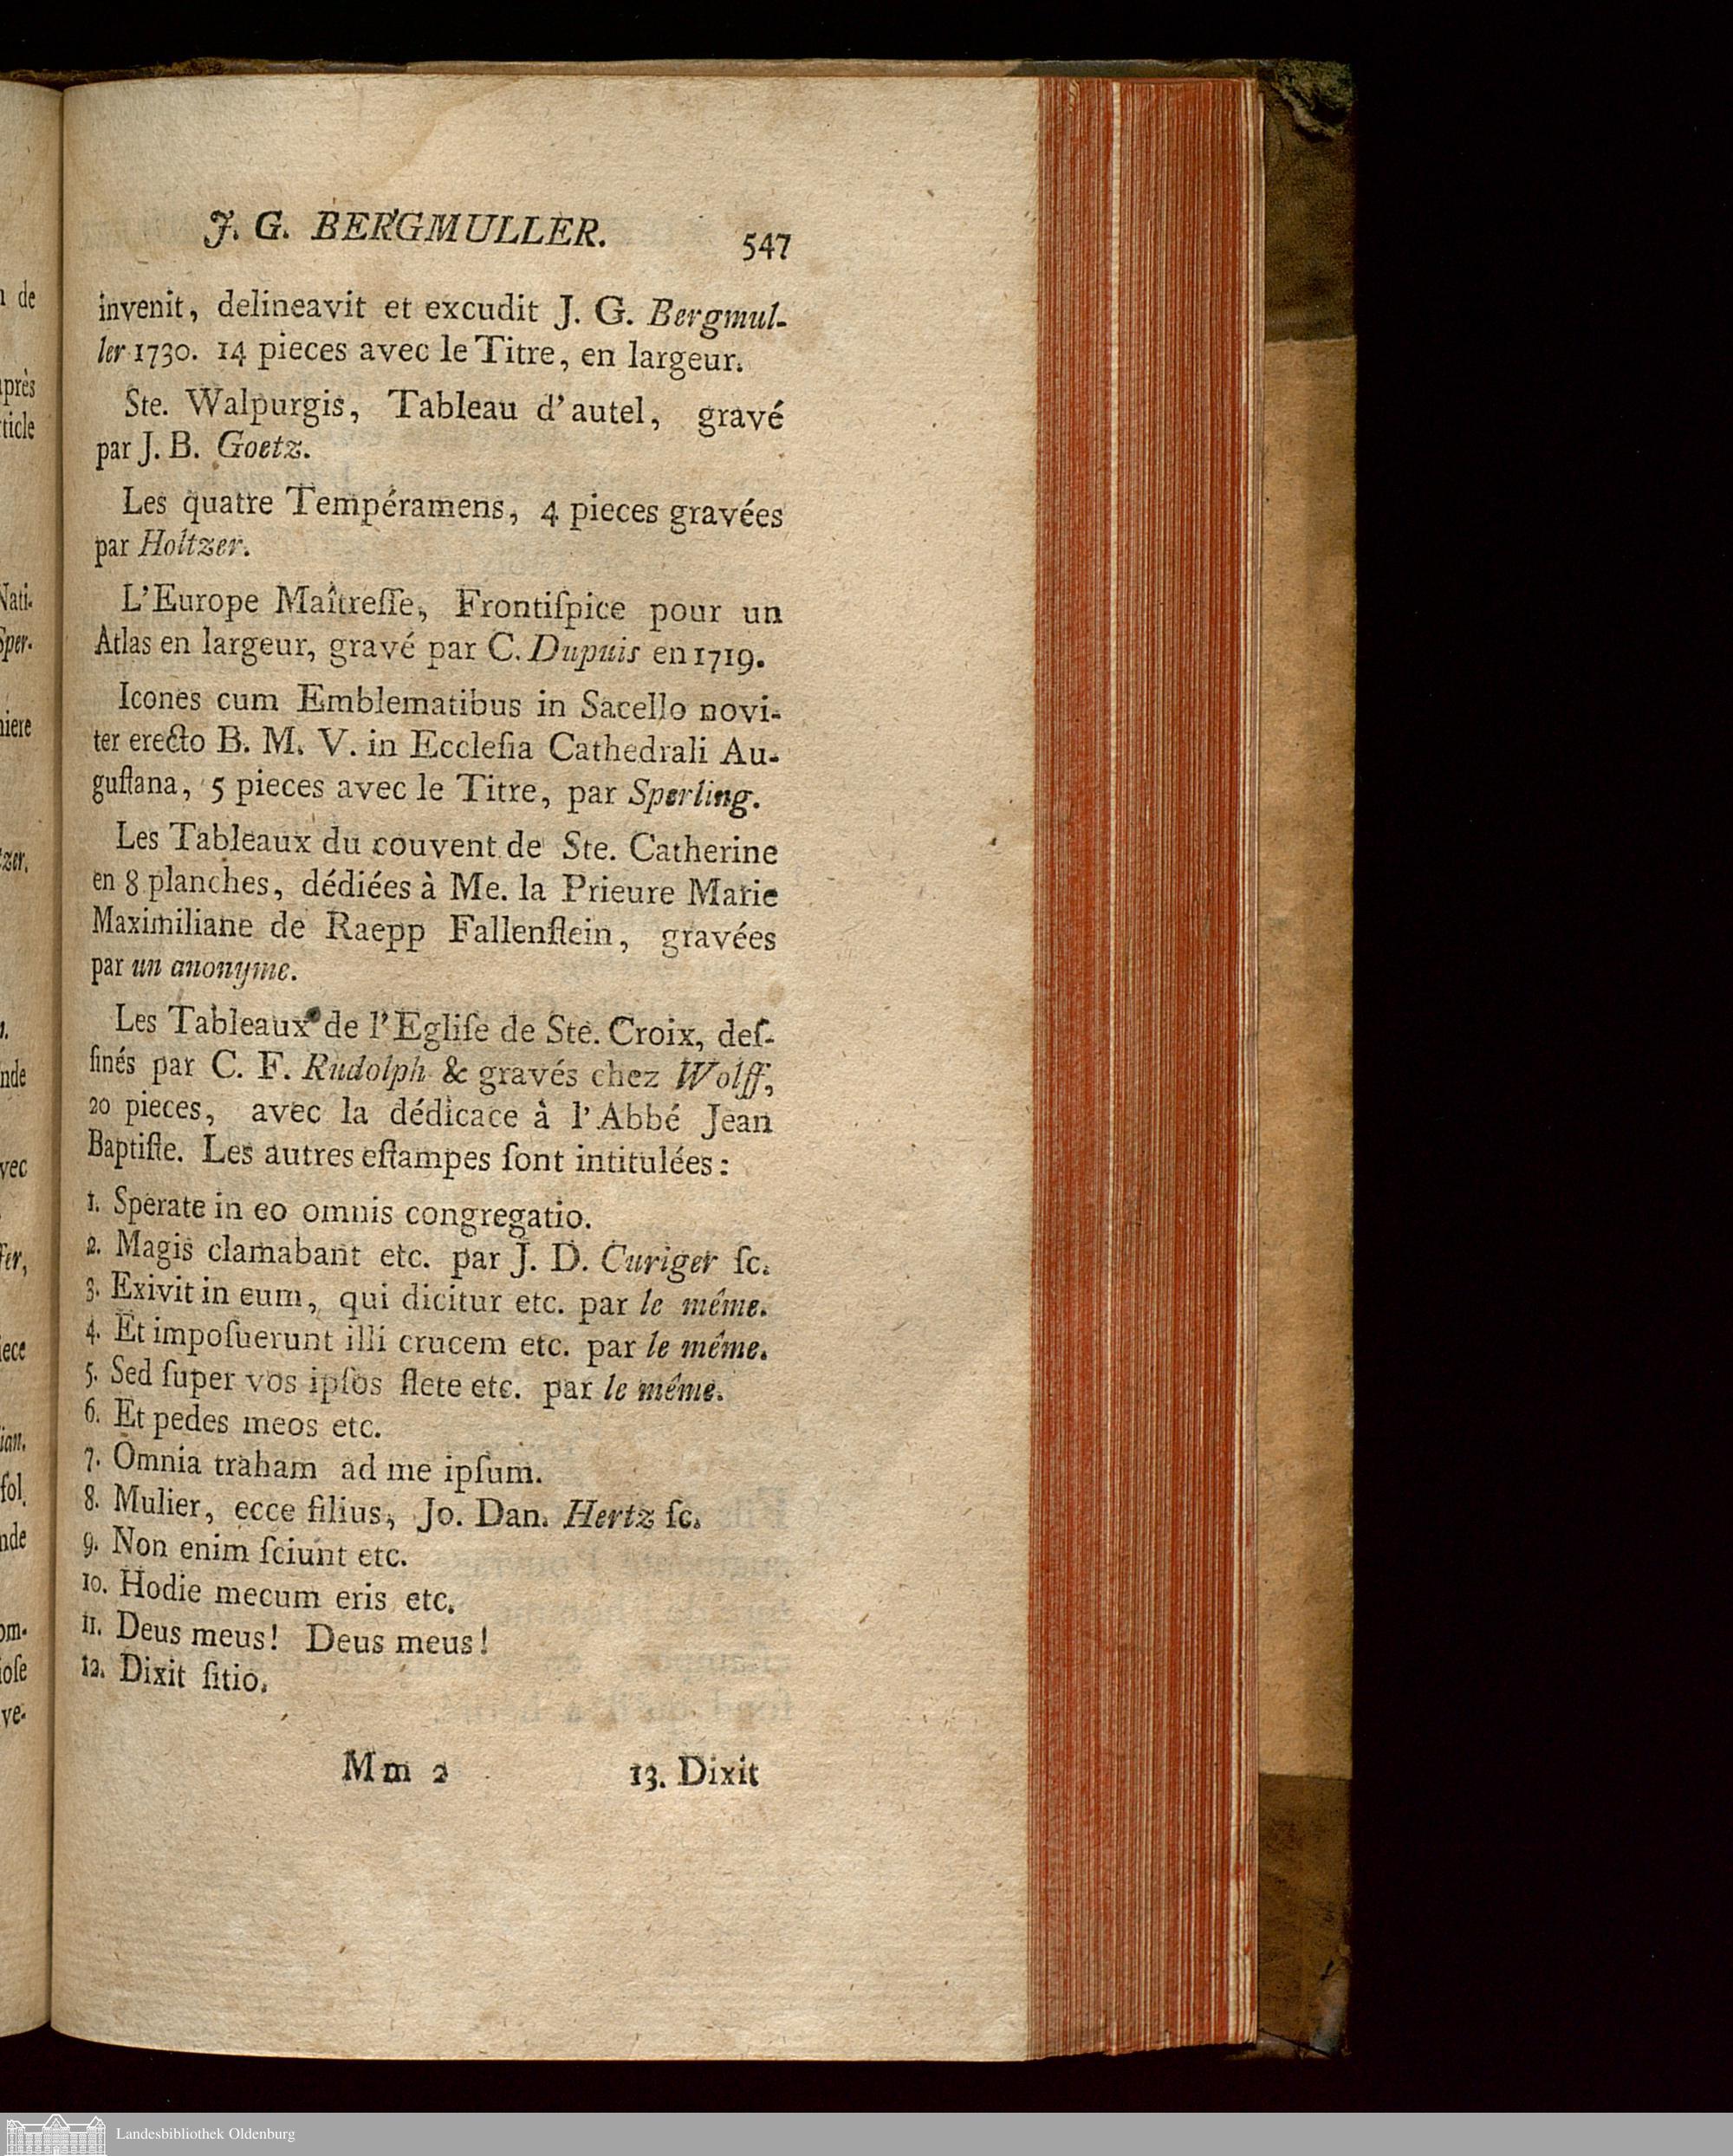 J. G. BERGMULLER. 547
invenit, delineavit et excudit J. G. Bergmul-
ler 1730. 14 pieces avec le Titre, en largeur.
Ste. Walpurgis, Tableau d'autel, gravé
par J. B. Goetz.
Les quatre Tempéramens, 4 pieces gravées
par Holtzer.
L'Europe Maîtreſſe, Frontiſpice pour un
Atlas en largeur, gravé par C. Dupuis en 1719.
Icones cum Emblematibus in Sacello novi-
ter erecto B. M. V. in Eccleſia Cathedrali Au-
guſtana, 5 pieces avec le Titre, par Sperling.
Les Tableaux du couvent de Ste. Catherine
en 8 planches, dédiées à Me. la Prieure Marie
Maximiliane de Raepp Fallenſtein, gravées
par un anonyme.
Les Tableaux de l'Egliſe de Ste. Croix, deſ-
ſinés par C. F. Rudolph & gravés chez Wolff,
20 pieces, avec la dédicace à l'Abbé Jean
Baptiſte. Les autres eſtampes ſont intitulées:
1. Sperate in eo omnis congregatio.
2. Magis clamabant etc. par J. D. Curiger ſc.
3. Exivit in eum, qui dicitur etc. par le même.
4. Et impoſuerunt illi crucem etc. par le même.
5. Sed ſuper vos ipſos flete etc. par le même.
6. Et pedes meos etc.
7. Omnia traham ad me ipſum.
8. Mulier, ecce filius, Jo. Dan. Hertz ſc.
9. Non enim ſciunt etc.
10. Hodie mecum eris etc.
11. Deus meus! Deus meus!
12. Dixit ſitio.
Mm 2 13. Dixit
Landesbibliothek Oldenburg